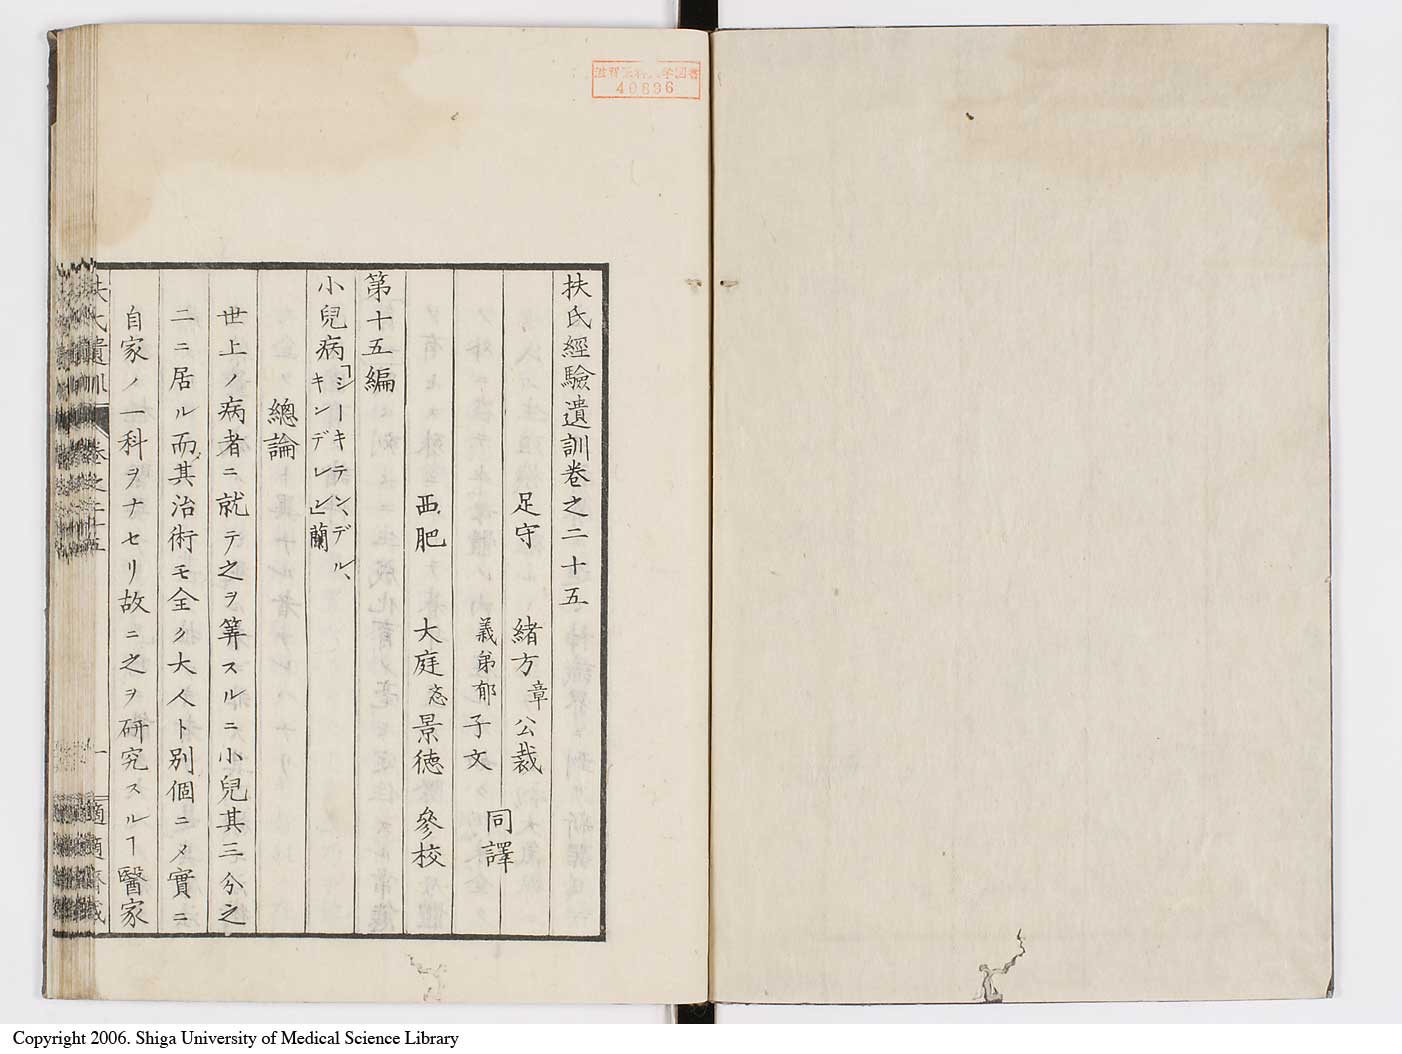 40896
扶氏經驗遺訓卷之二十五
足守　緒方章公裁
義弟郁子文　同譯
西肥　大庭忞景德　參校
第十五編
小兒病「シーキテン、デル、キンデレン」蘭
總論
世上ノ病者ニ就テ之ヲ筭スルニ小兒其三分之
二ニ居ル而其治術モ全ク大人ト別個ニメ實ニ
自家ノ一科ヲナセリ故ニ之ヲ研究スルヿ醫家
扶氏遺訓　卷之二十五　一　適適齋藏
Copyright 2006. Shiga University of Medical Science Library